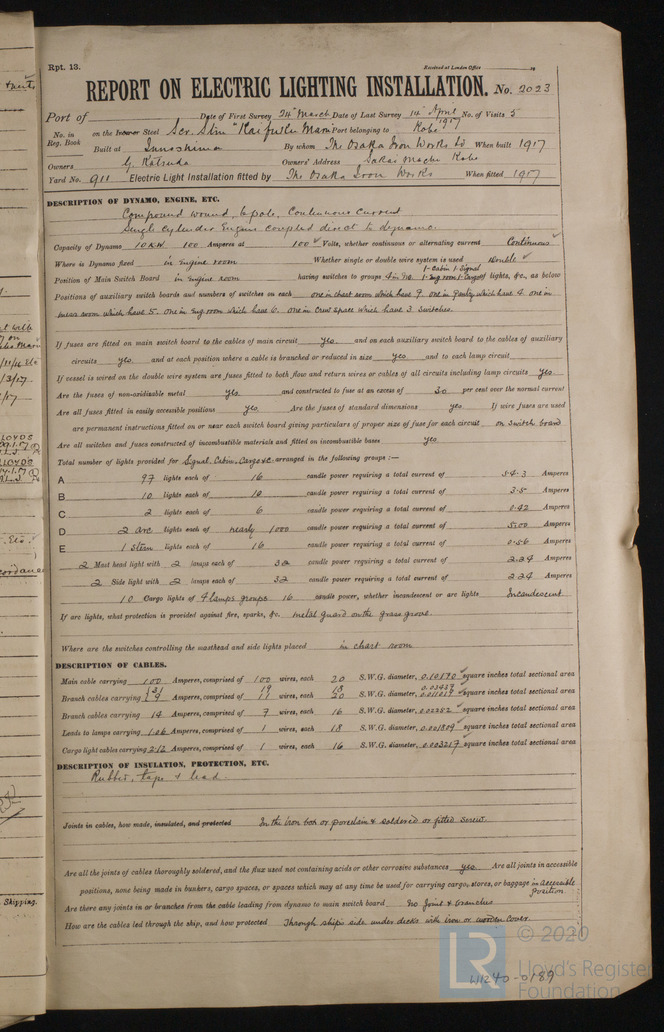 Rpt. 13.
Received at London Office 19
REPORT ON ELECTRIC LIGHTING INSTALLATION. No. 2023
Port of Date of First Survey 24th March Date of Last Survey 14th April 1917 No. of Visits 5
No. in Reg. Book on the Iron or Steel Scr. Stm "Kaifuku Maru Port belonging to Kobe
Built at Innoshima By whom The Osaka Iron Works Ld When built 1917
Owners G. Katsuda Owners' Address Sakai Machi Kobe
Yard No. 911 Electric Light Installation fitted by The Osaka Iron Works When fitted 1917
DESCRIPTION OF DYNAMO, ENGINE, ETC.
Compound wound, 6 pole, Continuous Current
Single cylinder Engine coupled direct to dynamo.
Capacity of Dynamo 10 KW 100 Amperes at 100 Volts, whether continuous or alternating current Continuous
Where is Dynamo fixed in Engine room Whether single or double wire system is used double
Position of Main Switch Board in Engine room having switches to groups 4 in No. 1-cabin 1-Signal 1-Eng room 1-Cargo of lights, &c., as below
Positions of auxiliary switch boards and numbers of switches on each one in chart room which have 9. one in Pantry which have 4. one in
room which have 5. one in Eng. room which have 6. one in Crew space which have 3 switches.
If fuses are fitted on main switch board to the cables of main circuit yes and on each auxiliary switch board to the cables of auxiliary
circuits yes and at each position where a cable is branched or reduced in size yes and to each lamp circuit
If vessel is wired on the double wire system are fuses fitted to both flow and return wires or cables of all circuits including lamp circuits yes
Are the fuses of non-oxidizable metal yes and constructed to fuse at an excess of 30 per cent over the normal current
Are all fuses fitted in easily accessible positions yes Are the fuses of standard dimensions yes If wire fuses are used
are permanent instructions fitted on or near each switch board giving particulars of proper size of fuse for each circuit on switch board
Are all switches and fuses constructed of incombustible materials and fitted on incombustible bases yes
Total number of lights provided for Signal, Cabin, Cargo &c. arranged in the following groups :—
A 97 lights each of 16 candle power requiring a total current of 54.3 Amperes
B 10 lights each of 10 candle power requiring a total current of 3.5 Amperes
C 2 lights each of 6 candle power requiring a total current of 0.42 Amperes
D 2 arc lights each of nearly 1000 candle power requiring a total current of 5.00 Amperes
E 1 Stern lights each of 16 candle power requiring a total current of 0.56 Amperes
2 Mast head light with 2 lamps each of 32 candle power requiring a total current of 2.24 Amperes
2 Side light with 2 lamps each of 32 candle power requiring a total current of 2.24 Amperes
10 Cargo lights of 4 lamps groups 16 candle power, whether incandescent or arc lights Incandescent
If arc lights, what protection is provided against fire, sparks, &c. metal guard on the
Where are the switches controlling the masthead and side lights placed in chart room
DESCRIPTION OF CABLES.
Main cable carrying 100 Amperes, comprised of 100 wires, each 20 S.W.G. diameter, 0.10190 square inches total sectional area
Branch cables carrying {31 9 Amperes, comprised of 19 11 wires, each 18 20 S.W.G. diameter, square inches total sectional area
Branch cables carrying 14 Amperes, comprised of 7 wires, each 16 S.W.G. diameter, square inches total sectional area
Leads to lamps carrying 1.06 Amperes, comprised of 1 wires, each 18 S.W.G. diameter, 0.001809 square inches total sectional area
Cargo light cables carrying 2.12 Amperes, comprised of 1 wires, each 16 S.W.G. diameter, 0.003217 square inches total sectional area
DESCRIPTION OF INSULATION, PROTECTION, ETC.
Rubber, tape & lead.
Joints in cables, how made, insulated, and protected In the iron box or porcelain & soldered or fitted screw.
Are all the joints of cables thoroughly soldered, and the flux used not containing acids or other corrosive substances yes Are all joints in accessible
positions, none being made in bunkers, cargo spaces, or spaces which may at any time be used for carrying cargo, stores, or baggage in accessible position
Are there any joints in or branches from the cable leading from dynamo to main switch board no joint & branches
How are the cables led through the ship, and how protected Through ship's side under decks with iron or wooden cover.
© 2020
LR Lloyd's Register Foundation
W1240-0189
Shipping.